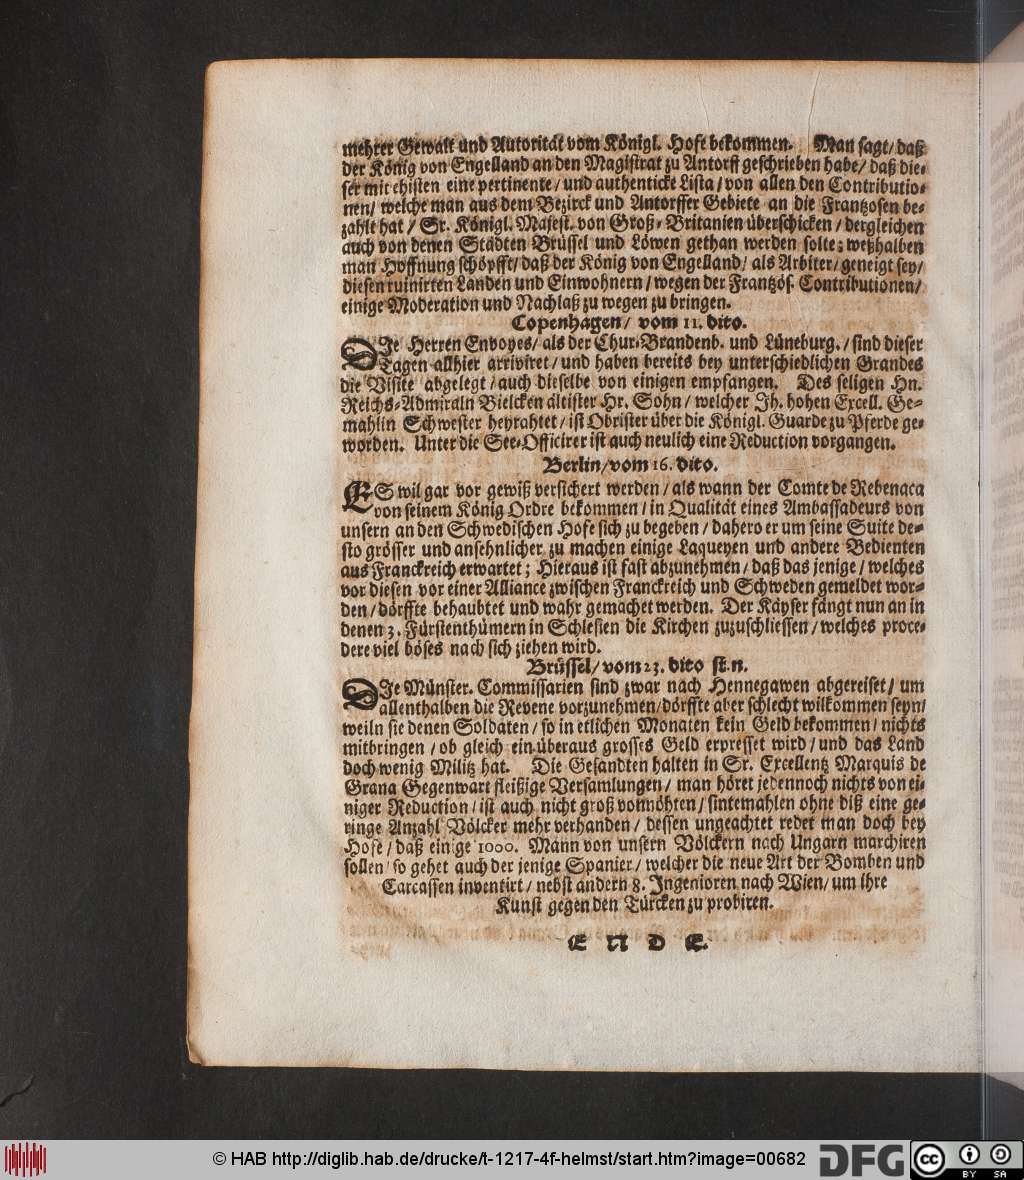 mehrer Gewalt und Autorität vom Königl. Hofe bekommen. Man sagt/ daß
der König von Engelland an den Magistrat zu Antorff geschrieben habe/ daß die-
ser mit ehisten eine pertinente/ und authenticke Lista/ von allen den Contributio-
nen/ welche man aus dem Bezirck und Antorffer Gebiete an die Frantzosen be-
zahlt hat/ Sr. Königl. Majest. von Groß-Britanien überschicken/ dergleichen
auch von denen Städten Brüssel und Löwen gethan werden solte; weßhalben
man Hoffnung schöpfft/ daß der König von Engelland/ als Arbiter/ geneigt sey/
diesen ruinirten Landen und Einwohnern/ wegen der Frantzös. Contributionen/
einige Moderation und Nachlaß zu wegen zu bringen.
Copenhagen/ vom 11. dito.
DIe Herren Envoyes/ als der Chur-Brandenb. und Lüneburg./ sind dieser
Tagen allhier arriviret/ und haben bereits bey unterschiedlichen Grandes
die Visite abgelegt/ auch dieselbe von einigen empfangen. Des seligen Hn.
Reichs-Admiraln Bielcken ältister Hr. Sohn/ welcher Ih. hohen Excell. Ge-
mahlin Schwester heyrahtet/ ist Obrister über die Königl. Guarde zu Pferde ge-
worden. Unter die See-Officirer ist auch neulich eine Reduction vorgangen.
Berlin/ vom 16. dito.
ES wil gar vor gewiß versichert werden/ als wann der Comte de Rebenaca
von seinem König Ordre bekommen/ in Qualität eines Ambassadeurs von
unsern an den Schwedischen Hofe sich zu begeben/ dahero er um seine Suite de-
sto grösser und ansehnlicher zu machen einige Laqueyen und andere Bedienten
aus Franckreich erwartet; Hieraus ist fast abzunehmen/ daß das jenige/ welches
vor diesen vor einer Alliance zwischen Franckreich und Schweden gemeldet wor-
den/ dörffte behaubtet und wahr gemachet werden. Der Käyser fängt nun an in
denen 3. Fürstenthümern in Schlesien die Kirchen zuzuschliessen/ welches proce-
dere viel böses nach sich ziehen wird.
Brüssel/ vom 23. dito st. n.
DIe Münster. Commissarien sind zwar nach Hennegawen abgereiset/ um
allenthalben die Revene vorzunehmen/ dörffte aber schlecht wilkommen seyn/
weiln sie denen Soldaten/ so in etlichen Monaten kein Geld bekommen/ nichts
mitbringen/ ob gleich ein überaus grosses Geld erpresset wird/ und das Land
doch wenig Militz hat. Die Gesandten halten in Sr. Excellentz Marquis de
Grana Gegenwart fleißige Versamlungen/ man höret jedennoch nichts von ei-
niger Reduction/ ist auch nicht groß vonnöhten/ sintemahlen ohne diß eine ge-
ringe Anzahl Völcker mehr verhanden/ dessen ungeachtet redet man doch bey
Hofe/ daß einige 1000. Mann von unsern Völckern nach Ungarn marchiren
sollen/ so gehet auch der jenige Spanier/ welcher die neue Art der Bomben und
Carcassen inventirt/ nebst andern 8. Ingenioren nach Wien/ um ihre
Kunst gegen den Türcken zu probiren.
E N D E.
© HAB http://diglib.hab.de/drucke/t-1217-4f-helmst/start.htm?image=00682
DFG
cc BY SA